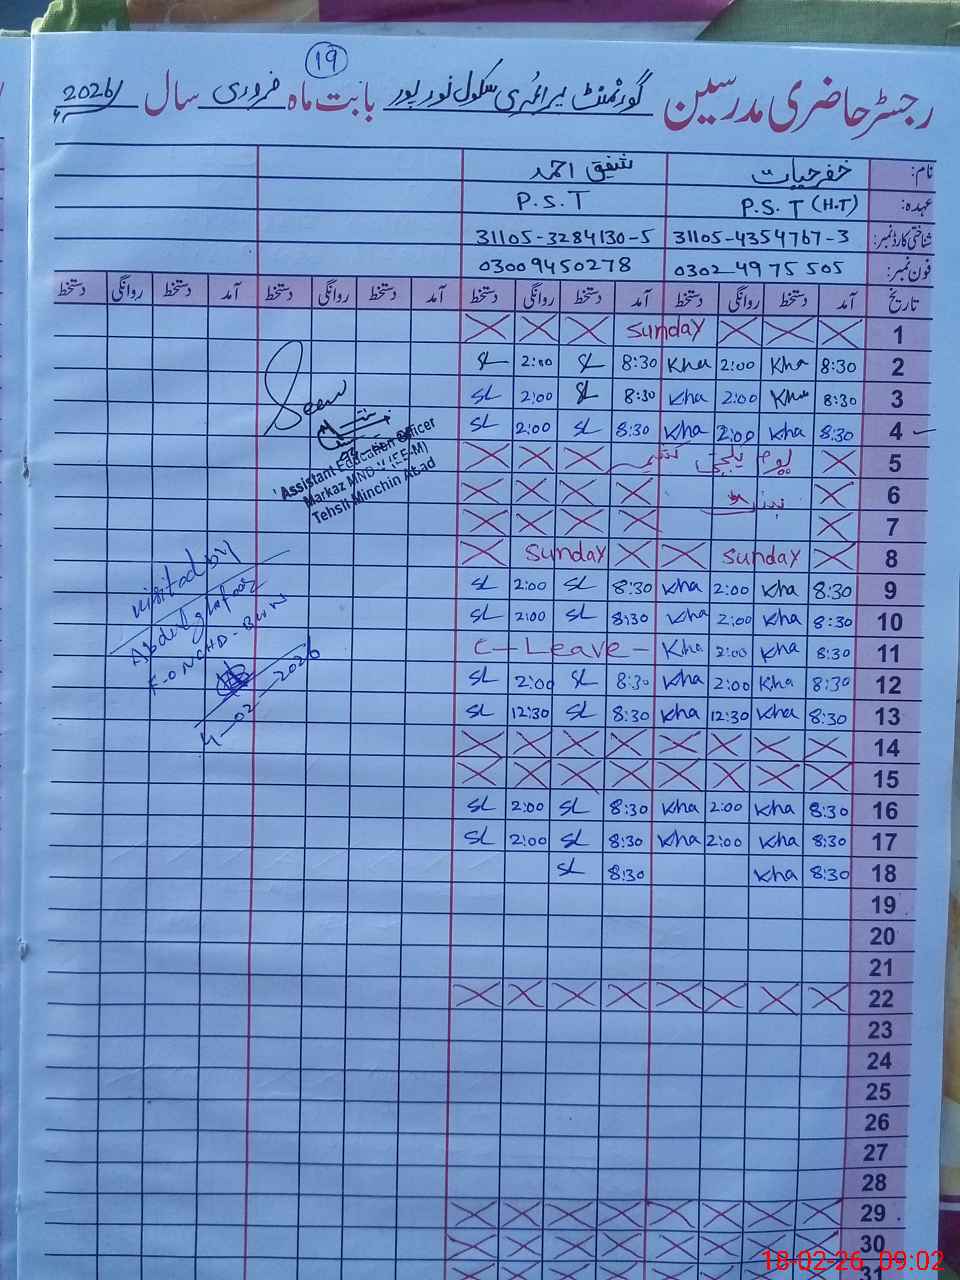 19
رجسٹر حاضری مدرسین گورنمنٹ پرائمری سکول نور پور بابت ماہ فروری سال 2026ء
نام: خضر حیات شفیق احمد
عہدہ: P.S.T (H.T) P.S.T
شناختی کارڈ نمبر: 31105-4354767-3 31105-3284130-5
فون نمبر: 0302-4975505 03009450278
تاریخ آمد دستخط روانگی دستخط آمد دستخط روانگی دستخط آمد دستخط روانگی دستخط آمد دستخط روانگی دستخط
1 Sunday
2 8:30 Kha 2:00 Kha 8:30 SL 2:00 SL
3 8:30 Kha 2:00 Kha 8:30 SL 2:00 SL
4 8:30 Kha 2:00 Kha 8:30 SL 2:00 SL
5 یوم یکجہتی کشمیر
6
7
8 Sunday Sunday
9 8:30 Kha 2:00 Kha 8:30 SL 2:00 SL
10 8:30 Kha 2:00 Kha 8:30 SL 2:00 SL
11 8:30 Kha 2:00 Kha C-Leave-
12 8:30 Kha 2:00 Kha 8:30 SL 2:00 SL
13 8:30 Kha 12:30 Kha 8:30 SL 12:30 SL
14
15
16 8:30 Kha 2:00 Kha 8:30 SL 2:00 SL
17 8:30 Kha 2:00 Kha 8:30 SL 2:00 SL
18 8:30 Kha 8:30 SL
19
20
21
22
23
24
25
26
27
28
29
30
31
Seen
Assistant Education Officer
Markaz (EE-M)
Tehsil Minchin Abad
visited by
Abdul ghafoor
02-2026
18-02-26 09:02